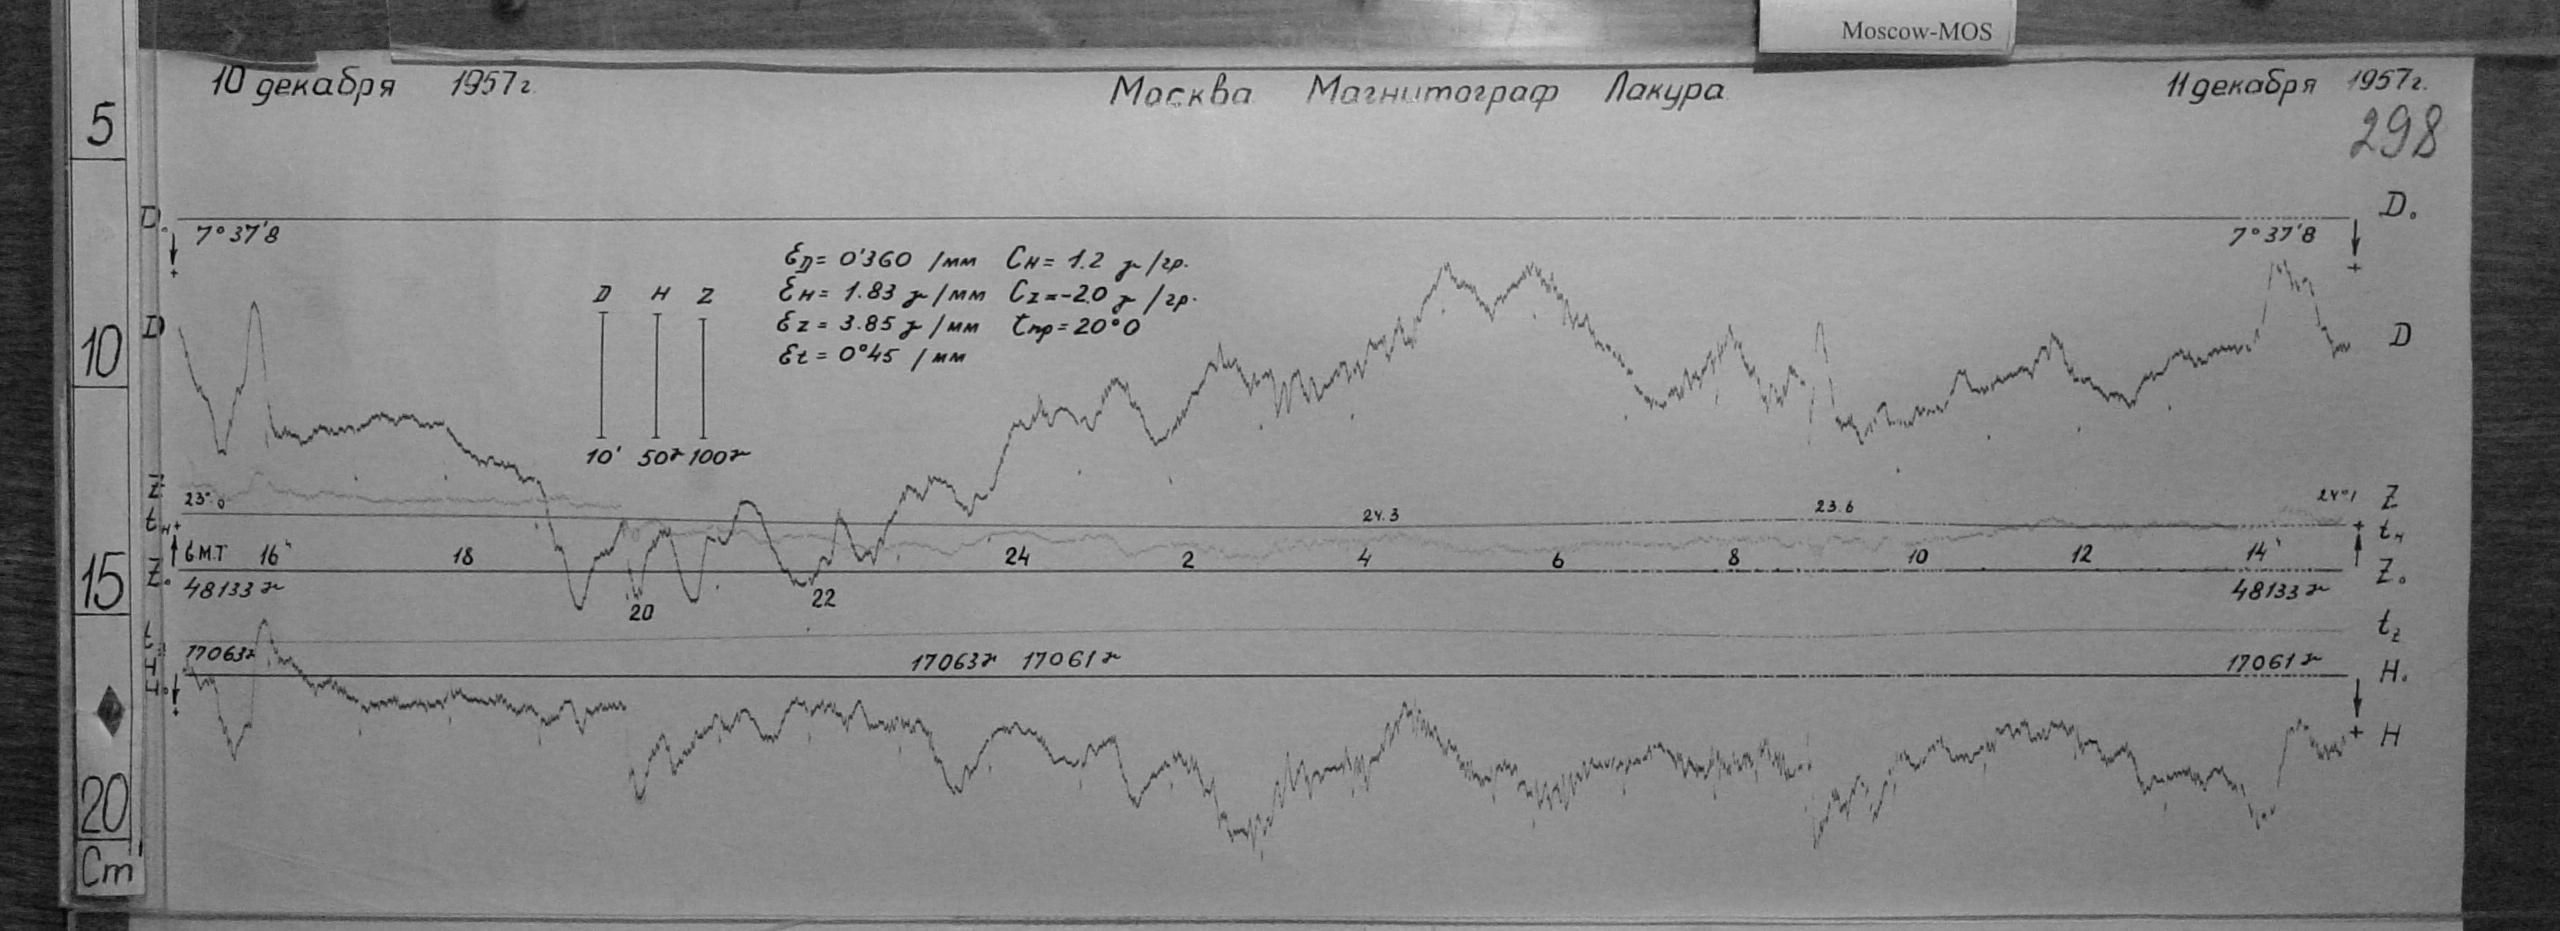 Moscow-MOS
10 декабря 1957г. Москва Магнитограф Лакура 11 декабря 1957г.
298
5
D₀ D₀
7°37'8 7°37'8
+ +
ƐD = 0'360 /мм Cн = 1.2 γ/гр.
Ɛн = 1.83 γ/мм Cz = -2.0 γ/гр.
Ɛz = 3.85 γ/мм tпр = 20°0
Ɛt = 0°45 /мм
D H Z
10' 50γ 100γ
10
D D
Z Z
23°0 24.3 23.6 24°1
tн + + tн
G.M.T 16ʰ 18 20 22 24 2 4 6 8 10 12 14ʰ
15
Z₀ Z₀
48133γ 48133γ
t tz
17063γ 17063γ 17061γ 17061γ
H H₀
H₀
+ + H
20
Cm